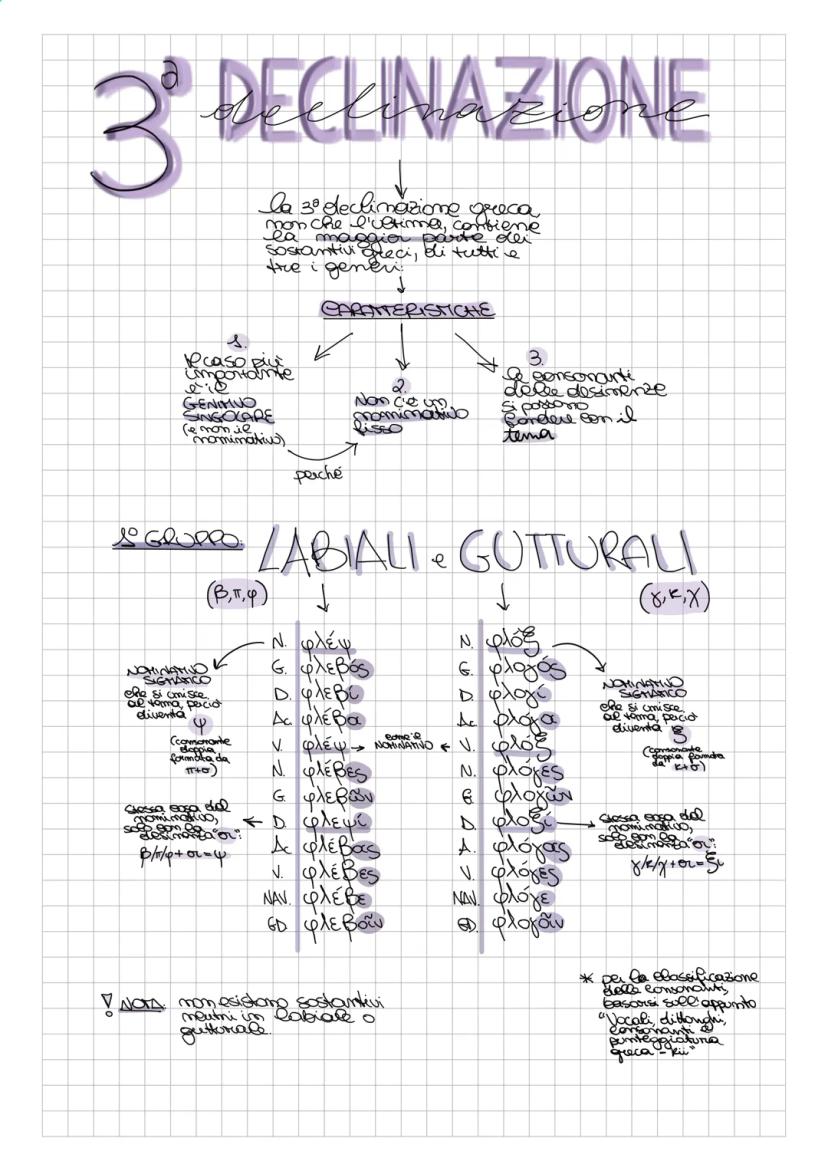 3ª DECLINAZIONE
declinazione
la 3ª declinazione greca
non che l'ultima, contiene
la maggior parte dei
sostantivi greci, di tutti e
tre i generi.
CARATTERISTICHE
1.
Il caso più
importante
è il
GENITIVO
SINGOLARE
(e non il
nominativo)
perché
2.
Non c'è un
nominativo
fisso
3.
le consonanti
delle desinenze
si possono
fondere con il
tema
1° GRUPPO:
LABIALI e GUTTURALI
(β,π,φ)
(γ,κ,χ)
N. φλέψ
G. φλεβός
D. φλεβί
Ac. φλέβα
V. φλέψ
N. φλέβες
G. φλεβῶν
D. φλεψί
Ac. φλέβας
V. φλέβες
NAV. φλέβε
GD. φλεβοῖν
NOMINATIVO
SIGMATICO
che si unisce
al tema, perciò
diventa
ψ
(consonante
doppia
formata da
π+σ)
stessa cosa del
nominativo,
solo con la
desinenza "σι":
β/π/φ+σι=ψ
come il
NOMINATIVO
N. φλόξ
G. φλογός
D. φλογί
Ac. φλόγα
V. φλόξ
N. φλόγες
G. φλογῶν
D. φλοξί
A. φλόγας
V. φλόγες
NAV. φλόγε
GD. φλογοῖν
NOMINATIVO
SIGMATICO
che si unisce
al tema, perciò
diventa
ξ
(consonante
doppia formata
da κ+σ)
stessa cosa del
nominativo,
solo con la
desinenza "σι":
γ/κ/χ+σι=ξι
! NOTA: non esistono sostantivi
neutri in labiale o
gutturale.
* per la classificazione
delle consonanti,
basarsi sull'appunto
"Vocali, dittonghi,
consonanti e
punteggiatura
greca - kii"